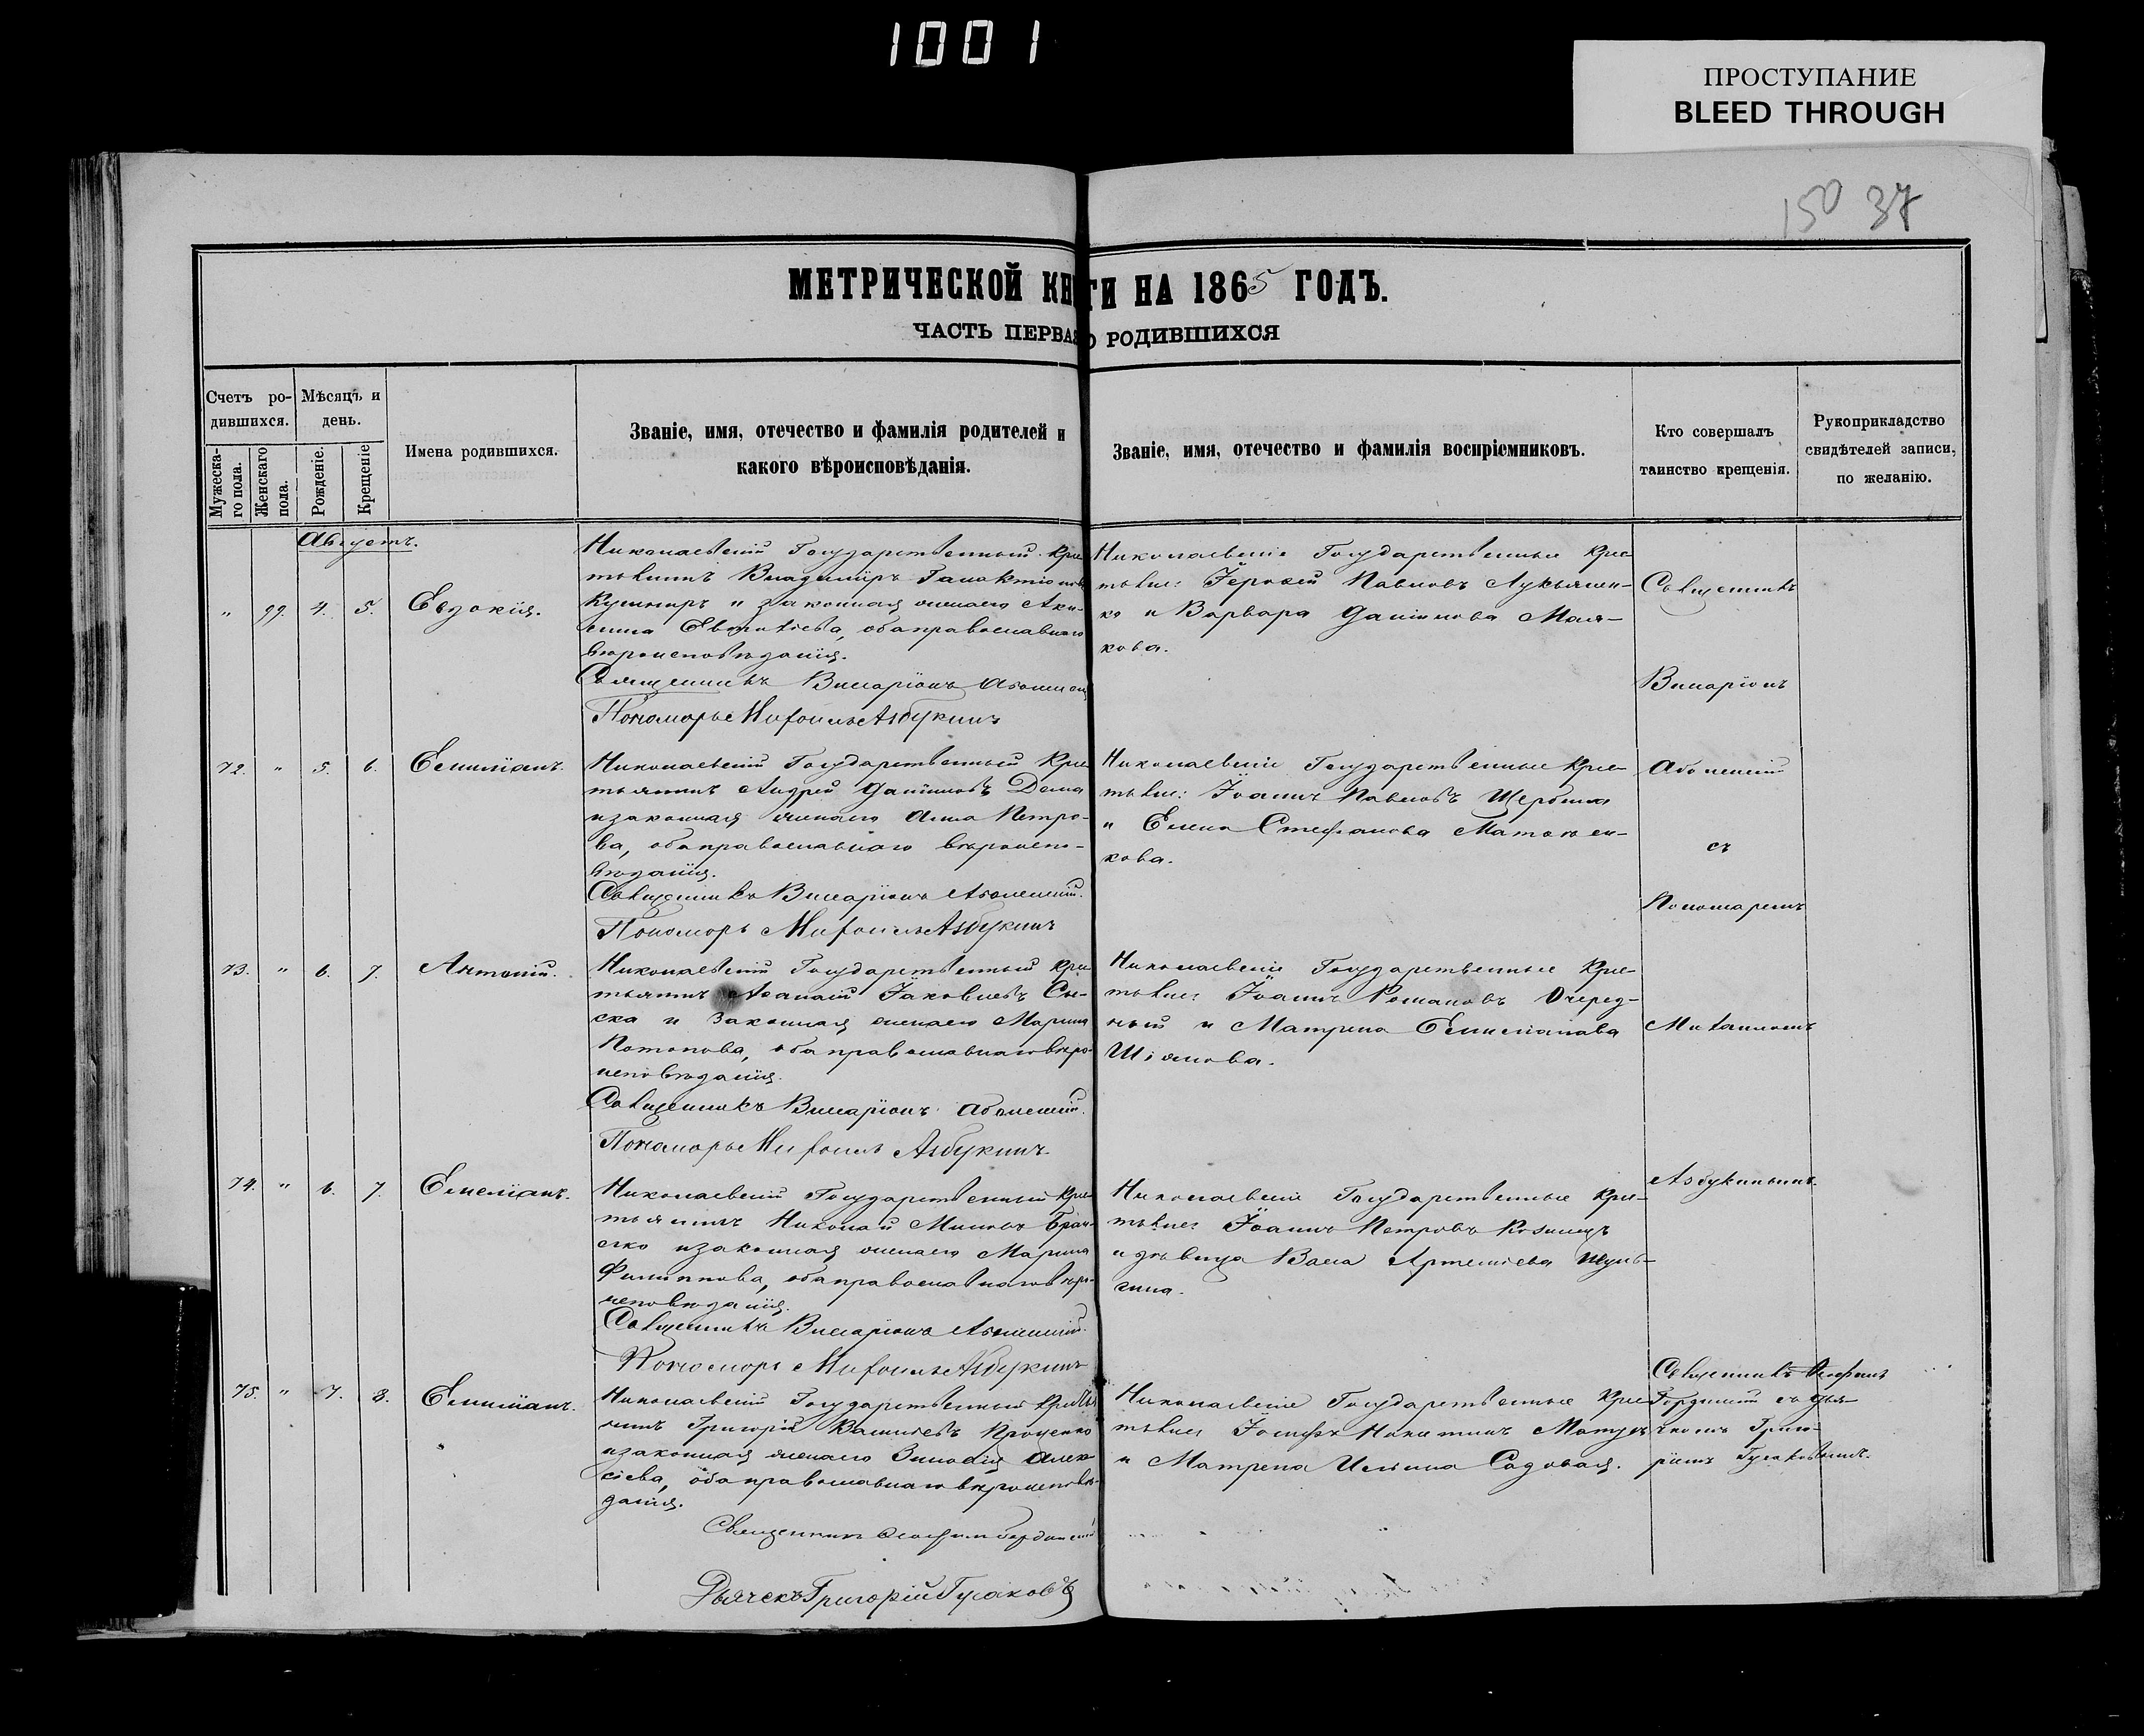 1001
ПРОСТУПАНИЕ
BLEED THROUGH
150 37
МЕТРИЧЕСКОЙ КНИГИ НА 1865 ГОДЪ.
ЧАСТЬ ПЕРВАЯ О РОДИВШИХСЯ
Счетъ ро-
дившихся.
Мужеска-
го пола.
Женскаго
пола.
Мѣсяцъ и
день.
Рожденіе.
Крещеніе
Имена родившихся.
Званіе, имя, отечество и фамилія родителей и
какого вѣроисповѣданія.
Званіе, имя, отечество и фамилія воспріемниковъ.
Кто совершалъ
таинство крещенія.
Рукоприкладство
свидѣтелей записи,
по желанію.
Августъ.
" 99. 4. 5. Евдокія.
Николаевскій Государственный Крес
тьянинъ Владиміръ Галактіоновъ
Кушниръ и законная жена его Аки-
лина Евстафіева, оба православнаго
вѣроисповѣданія.
Священникъ Виссаріонъ
Пономарь Михаилъ Азбукинъ
Николаевскіе Государственные Крес-
тьяне: Павловъ Лукьянен-
ко и Варвара Даніилова Маля-
кова.
72. " 5. 6. Емиліанъ.
Николаевскій Государственный Крес
тьянинъ Андрей Даніиловъ Дема
и законная жена его Анна Петро-
ва, оба православнаго вѣроиспо-
вѣданія.
Священникъ Виссаріонъ
Пономарь Михаилъ Азбукинъ
Николаевскіе Государственные Крес-
тьяне: Іоаннъ Павловъ Щербина
и Елена Стефанова
кова.
73. " 6. 7. Антоній.
Николаевскій Государственный Крес
тьянинъ Аѳанасій Іаковлевъ
ска и законная жена его Марина
Потапова, оба православнаго вѣро-
исповѣданія.
Священникъ Виссаріонъ
Пономарь Михаилъ Азбукинъ
Николаевскіе Государственные Крес-
тьяне: Іоаннъ Романовъ Очеред-
ный и Матрина Емиліанова
74. " 6. 7. Емеліанъ.
Николаевскій Государственный Крес
тьянинъ Николай
и законная жена его Марина
Филиппова, оба православнаго вѣро-
исповѣданія.
Священникъ Виссаріонъ
Пономарь Михаилъ Азбукинъ
Николаевскіе Государственные Крес-
тьяне: Іоаннъ Петровъ
и дѣвица Васса Артеміева Шуль-
гина.
75. " 7. 8. Емиліанъ.
Николаевскій Государственный Крестья
нинъ Григорій Васильевъ Проценко
и законная жена его Зиновія Алек-
сіева, оба православнаго вѣроисповѣ-
данія.
Священникъ
Дьячекъ Григорій Гусаковъ
Николаевскіе Государственные Крес
тьяне: Іосифъ Никитинъ
и Матрена Ильина Садовая.
Священникъ
Виссаріонъ
съ
Пономаремъ
Михаиломъ
Азбукинымъ.
Священникъ
съ Дья-
чкомъ Григо-
ріемъ Гусаковымъ.